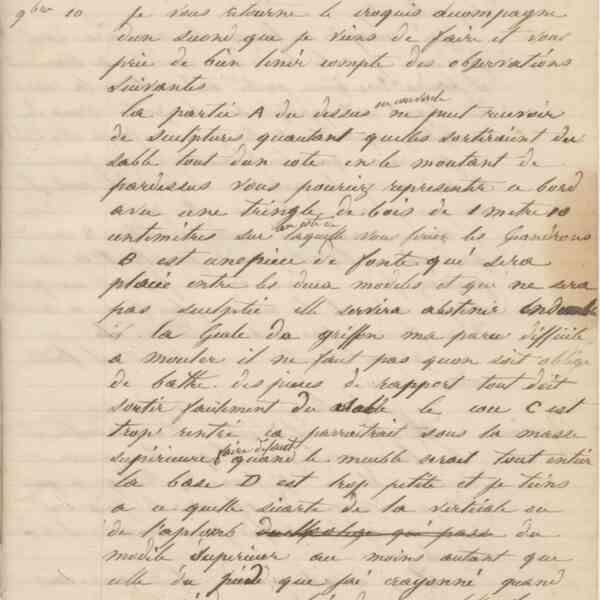 9bre 10 Je vous retourne le croquis accompagné
d'un second que je viens de faire et vous
prie de bien tenir compte des observations
suivantes
la partie A du dessus ou couvercle ne peut recevoir
de sculptures quautant quelles sortiraient du
sable tout d'un coté en le moutant de
pardessus vous pourriez representer ce bord
avec une tringle de bois de 1 metre 10
centimetres sur laquelle vous feriez les Ganderons
B est une piece de fonte qui sera
placée entre les deux modeles et qui ne sera
pas sculptée elle servira a obtenir
la Geule du griffon ma paru difficile
a mouler il ne faut pas quon soit obligé
de battre des pieces de rapport tout doit
sortir facilement du sable le cou C est
trop rentré ca parraitrait sous la masse
supérieure faire defaut quand le meuble serait tout entier
la base D est trop petite et je tiens
a ce quelle s'ecarte de la verticale ou
de l'aplomb qui passe du
modele Superieur au moins autant que
celle du pied que j'ai crayonné quand